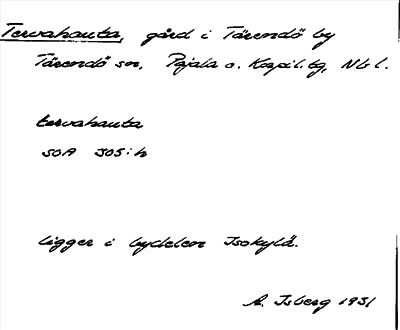 Tervahauta, gård i Tärendö by
Tärendö sn, Pajala o. Korpil. tg, Nb l.
tervahauta
SOA 305:h
ligger i bydelen Isokylä.
A. Isberg 1931